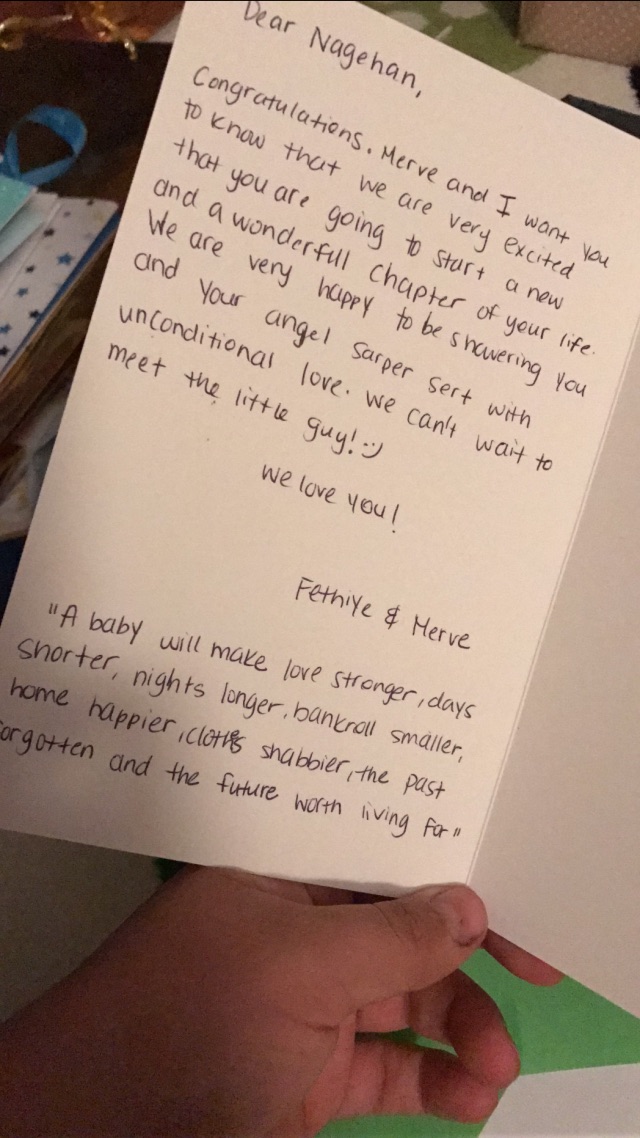 Dear Nagehan,
Congratulations. Merve and I want you
to know that we are very excited
that you are going to start a new
and a wonderfull chapter of your life.
We are very happy to be showering you
and your angel Sarper Sert with
unconditional love. We can't wait to
meet the little guy! :)
We love you!
Fethiye & Merve
"A baby will make love stronger, days
shorter, nights longer, bankroll smaller,
home happier, cloths shabbier, the past
forgotten and the future worth living for"